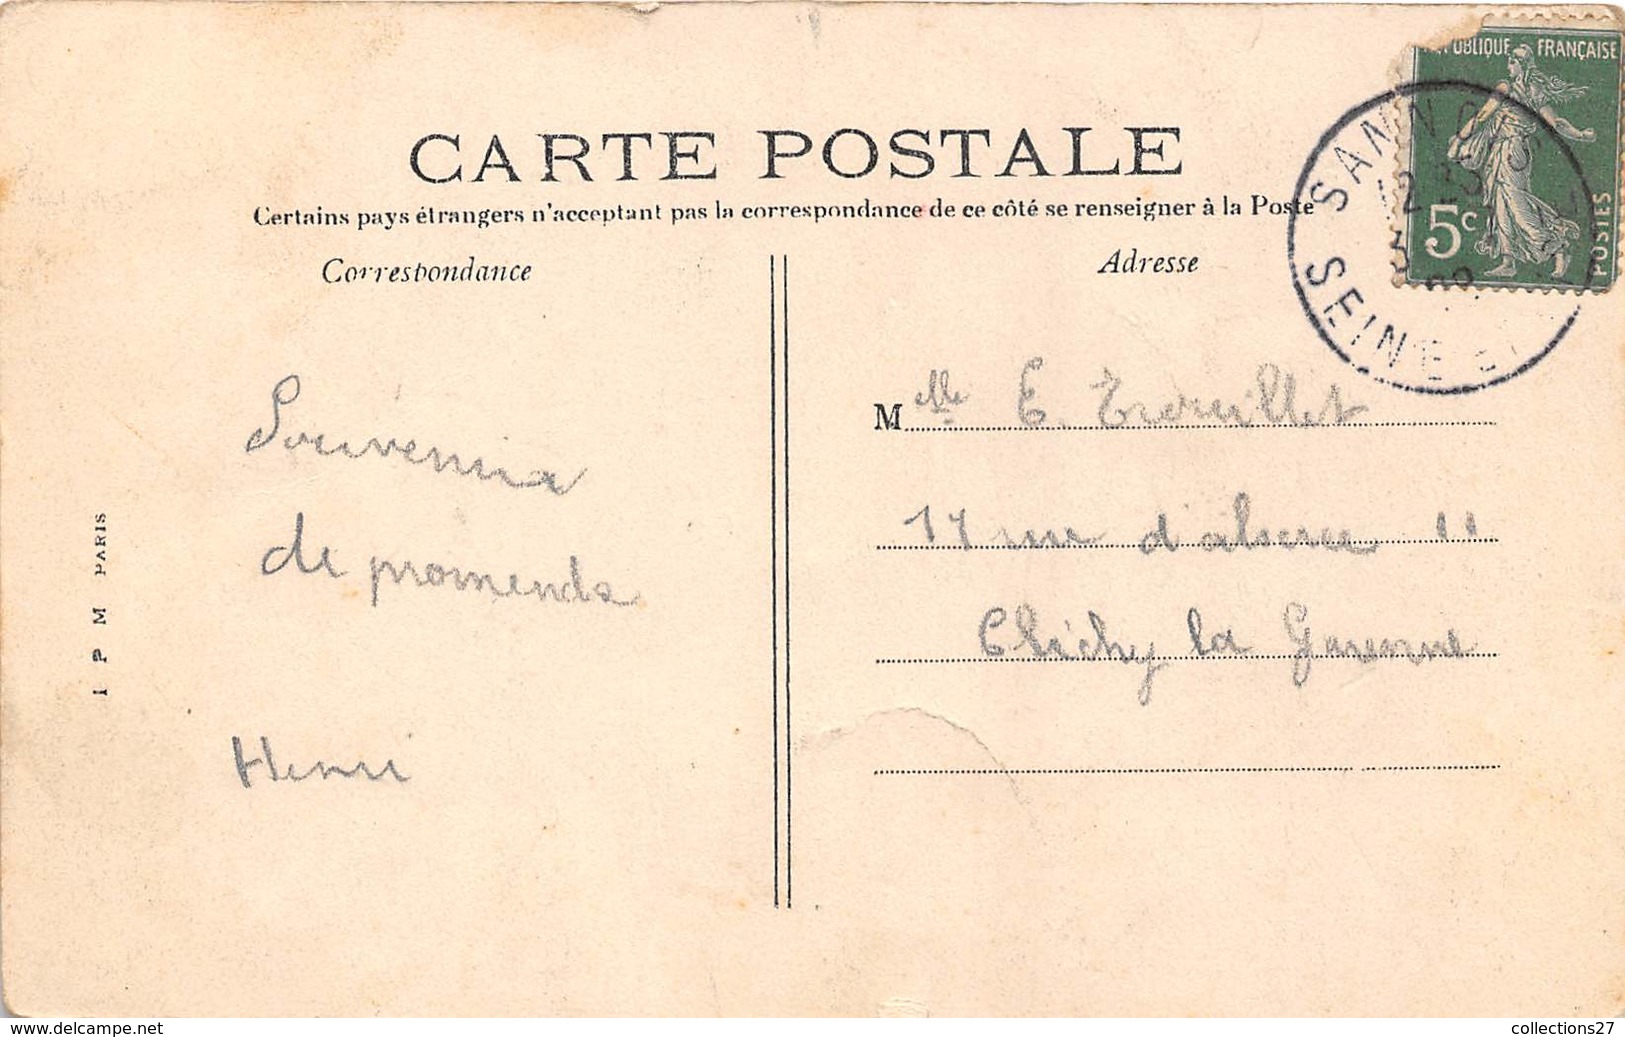 RÉPUBLIQUE FRANÇAISE
5c
POSTES
SANNOIS
SEINE
CARTE POSTALE
Certains pays étrangers n'acceptant pas la correspondance de ce côté se renseigner à la Poste
Correspondance
Adresse
Souvenir
de promenade
Henri
Melle E. Trouillet
17 rue d'alsace 11
Clichy la Garenne
I P M PARIS
www.delcampe.net
collections27